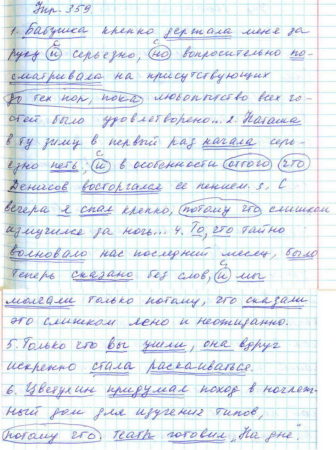 Упр. 359
1. Бабушка крепко держала меня за
С С
руку и серьезно, но вопросительно по-
сматривала на присутствующих
до тех пор, пока любопытство всех го-
стей было удовлетворено... 2. Наташа
в ту зиму в первый раз начала серь-
С
езно петь, и в особенности оттого что
Денисов восторгался ее пением. 3. С
вечера я спал крепко, потому что слишком
измучился за ночь... 4. То, что тайно
волновало нас последний месяц, было
С
теперь сказано без слов, и мы
молчали только потому, что сказали
это слишком ясно и неожиданно.
5. Только что вы ушли, она вдруг
искренно стала раскаиваться.
6. Цветулин придумал поход в ночлеж-
ный дом для изучения типов,
потому что театр готовил „На дне“.